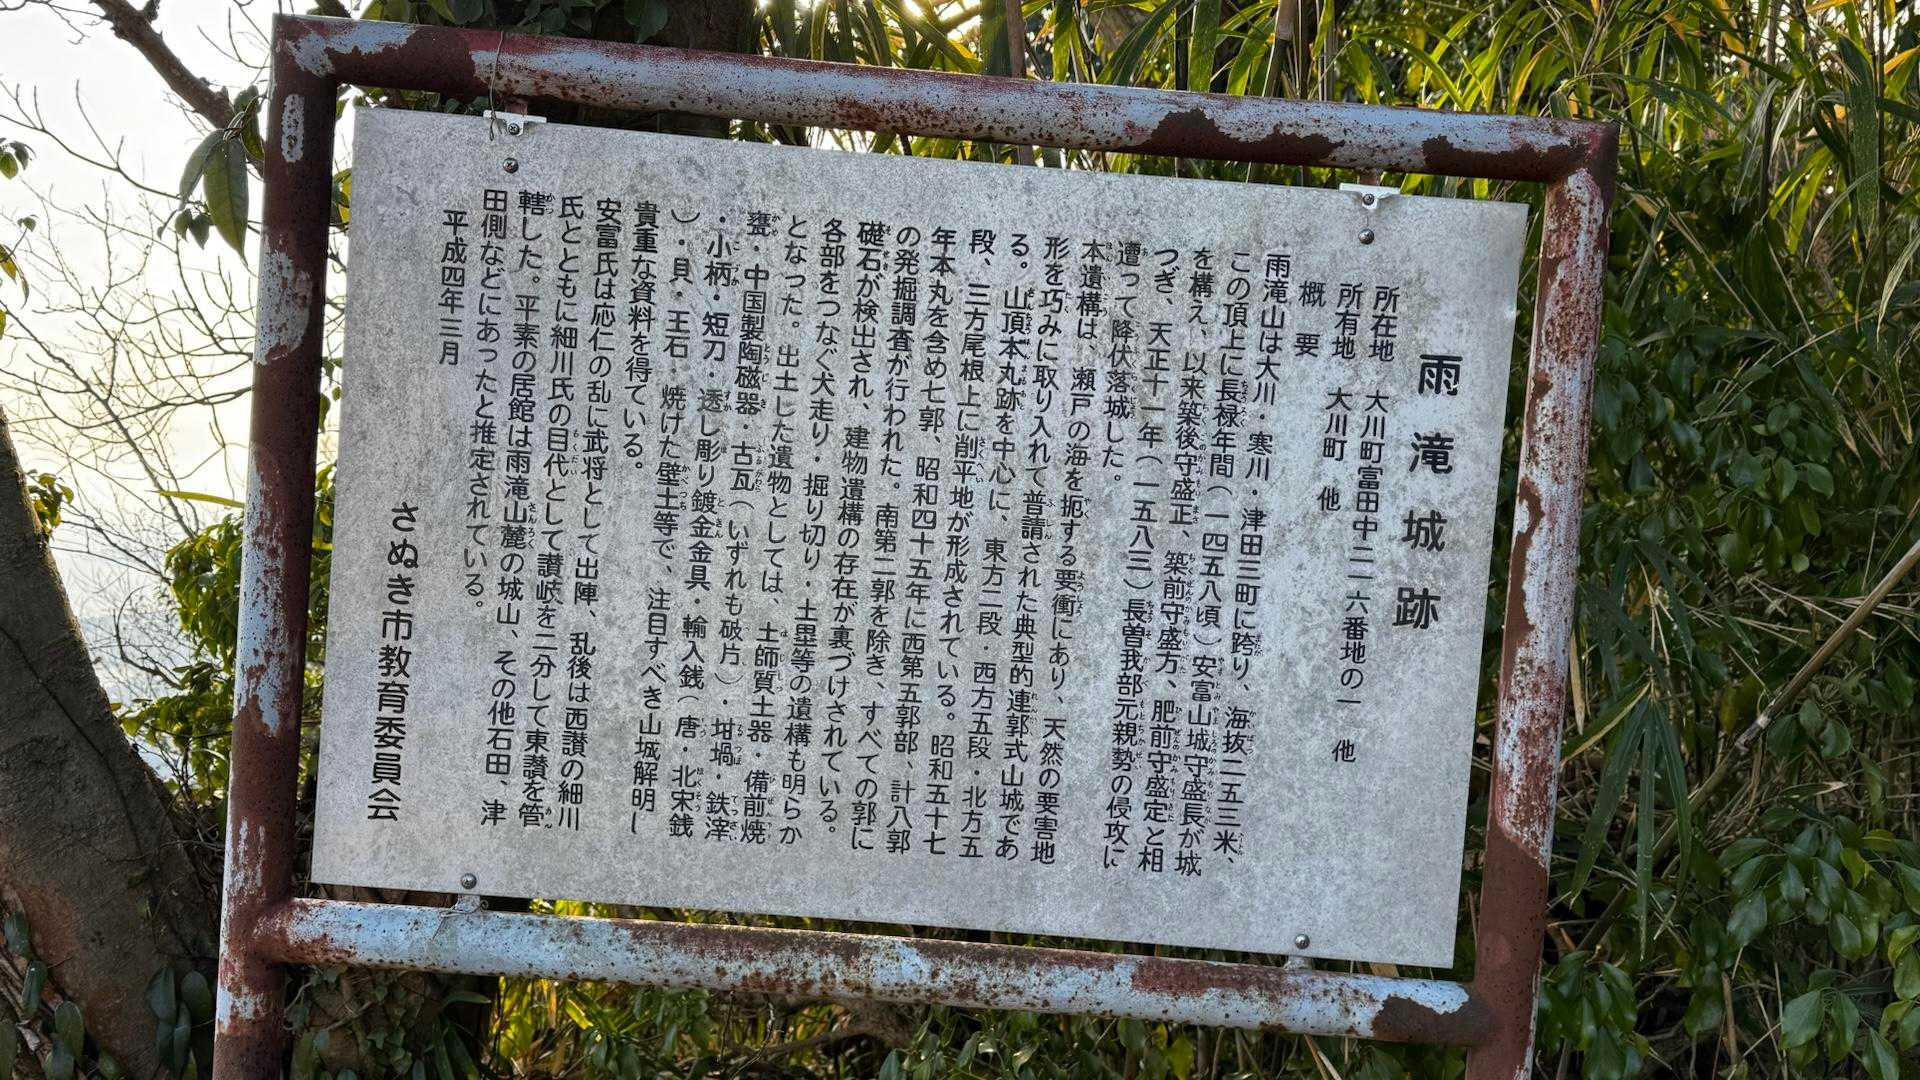 雨滝城跡
所在地 大川町富田中二一六番地の一 他
所有地 大川町 他
概要
雨滝山は大川・寒川・津田三町に跨り、海抜二五三米、
この頂上に長禄年間(一四五八頃)安富山城守盛長が城
を構え、以来築後守盛正、築前守盛方、肥前守盛定と相
つぎ、天正十一年(一五八三)長曽我部元親勢の侵攻に
遭って降伏落城した。
本遺構は、瀬戸の海を扼する要衝にあり、天然の要害地
形を巧みに取り入れて普請された典型的連郭式山城であ
る。山頂本丸跡を中心に、東方二段・西方五段・北方五
段、三方尾根上に削平地が形成されている。昭和五十七
年本丸を含め七郭、昭和四十五年に西第五郭部、計八郭
の発掘調査が行われた。南第二郭を除き、すべての郭に
礎石が検出され、建物遺構の存在が裏づけされている。
各部をつなぐ犬走り・掘り切り・土塁等の遺構も明らか
となった。出土した遺物としては、土師質土器・備前焼
甕・中国製陶磁器・古瓦(いずれも破片)・坩堝・鉄滓
・小柄・短刀・透し彫り鍍金金具・輸入銭(唐・北宋銭
)・貝・玉石・焼けた壁土等で、注目すべき山城解明し
貴重な資料を得ている。
安富氏は応仁の乱に武将として出陣、乱後は西讃の細川
氏とともに細川氏の目代として讃岐を二分して東讃を管
轄した。平素の居館は雨滝山麓の城山、その他石田、津
田側などにあったと推定されている。
平成四年三月
さぬき市教育委員会